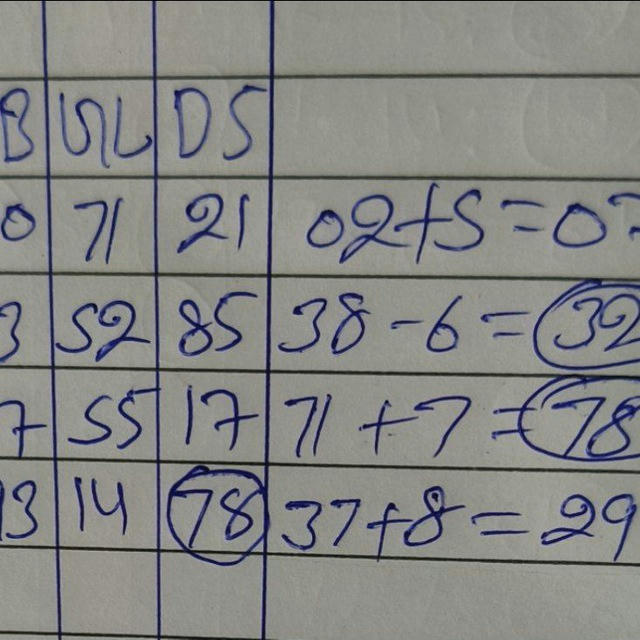 B GL DS
0 71 21 02+5=07
3 52 85 38-6=32
7 55 17 71+7=78
13 14 78 37+8=29